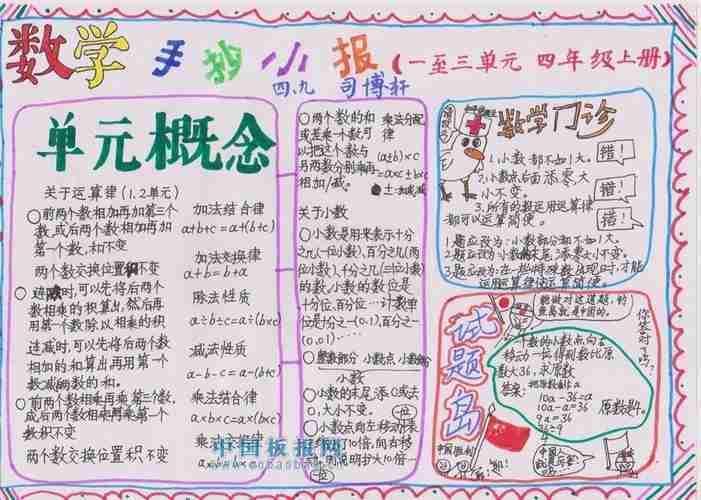 数学手抄小报（一至三单元 四年级上册）
四、九 司博轩
单元概念
关于运算律(1、2单元)
○前两个数相加再加第三个
数,或后两个数相加再加
第一个数,和不变
加法结合律
a+b+c=a+(b+c)
两个数交换位置和不变
加法交换律
a+b=b+a
连除时,可以先将后两个
数相乘的积算出,然后再
用第一个数除以相乘的积
除法性质
a÷b÷c=a÷(b×c)
连减时,可以先将后两个数
相加的和算出再用第一个
数减两数的和。
减法性质
a-b-c=a-(b+c)
○前两个数相乘再乘第三个数,
或后两个数相乘再乘第一个
数积不变
乘法结合律
a×b×c=a×(b×c)
两个数交换位置积不变
乘法交换律
○两个数的和
或差乘一个数可
以把这个数与
另两数分别乘再
相加/减。
乘法分配
律
(a±b)×c
=a×c±b×c
±=加或减
关于小数
○小数是用来表示十分
之几(一位小数),百分之几(两
位小数),千分之几(三位小数)
的数,小数的数位是
十分位,百分位…计数单
位是十分之一(0.1),百分之一
(0.01)……
○整数部分 小数点 小数部分
小数
○小数的末尾添0或去
0,大小不变。
○小数点向左移动
数学门诊
1.小数都不如1大。
错!
2.小数点后面添零大
小不变。
错!
3.所有的数运用运算律
都可以运算简便。
错!
1题应改为:小数部分都不如1大。
2题应改为:小数的末尾添零大小不变。
3题应改为:在一些特殊数出现时,才能
运用运算律使运算简便。
试题岛
你答对了吗?
一个数的小数点向右
移动一位得到数比原
数大36,求原数
答案:
10a-36=a
10a-a=36
9a=36
原数是4。
中国板报网